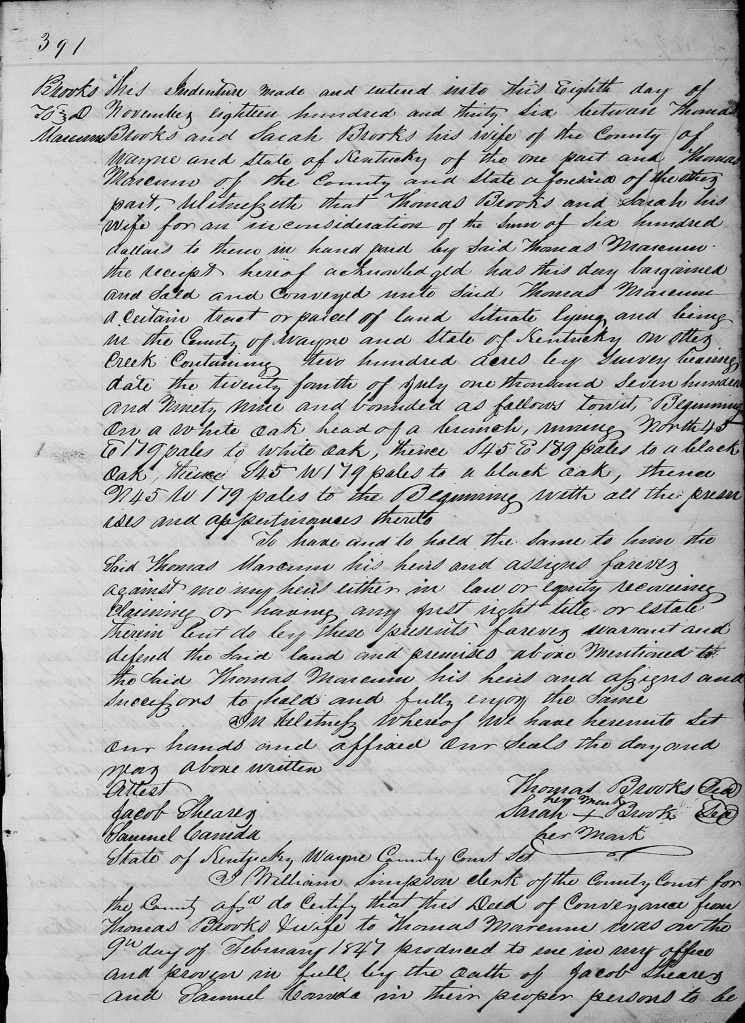 391
Brooks This Indenture made and entered into this Eighth day of
To D November eighteen hundred and thirty six between Thomas
Marcum Brooks and Sarah Brooks his wife of the County of
Wayne and State of Kentucky of the one part and Thomas
Marcum of the County and State aforesaid of the other
part, Witnesseth that Thomas Brooks and Sarah his
wife for an in consideration of the sum of Six hundred
dollars to them in hand paid by Said Thomas Marcum
the receipt hereof acknowledged has this day bargained
and Sold and Conveyed unto Said Thomas Marcum
a certain tract or parcel of land situate lying and being
in the County of Wayne and State of Kentucky on otter
Creek Containing two hundred acres by Survey bearing
date the twenty fourth of July one thousand Seven hundred
and Ninety nine and bounded as follows towit, Beginning
on a white oak head of a branch, runing North 45
E 179 poles to white oak, thence S45 E 189 poles to a black
oak, thence S45 W 179 poles to a black oak, thence
N45 W 179 poles to the Beginning with all the prem
ises and appertinances thereto
To have and to hold the same to him the
Said Thomas Marcum his heirs and assigns forever
against me my heirs either in law or equity recovering
Claiming or having any just right title or estate
therein but do by these presents forever warrant and
defend the Said land and premises above Mentioned to
the Said Thomas Marcum his heirs and assigns and
Successors to hold and fully enjoy the Same
In Witness Whereof we have hereunto Set
our hands and affixed our Seals the day and
year above written
Attest Thomas Brooks Seal
Jacob Shearer Sarah + Brooks Seal
Samuel Caneda her Mark
State of Kentucky Wayne County Court Sct
I William Simpson clerk of the County Court for
the County afsd do Certify that this Deed of Conveyance from
Thomas Brooks & wife to Thomas Marcum was on the
9th day of February 1847 produced to me in my office
and proven in full by the oath of Jacob Shearer
and Samuel Caneda in their proper persons to be